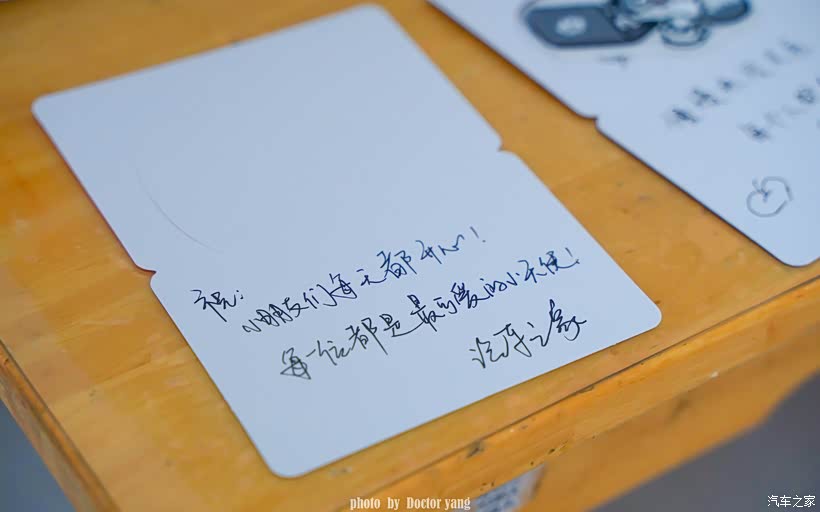 祝:
小朋友们每天都开心!
每一位都是最可爱的小天使!
汽车之家
photo by Doctor yang
汽车之家